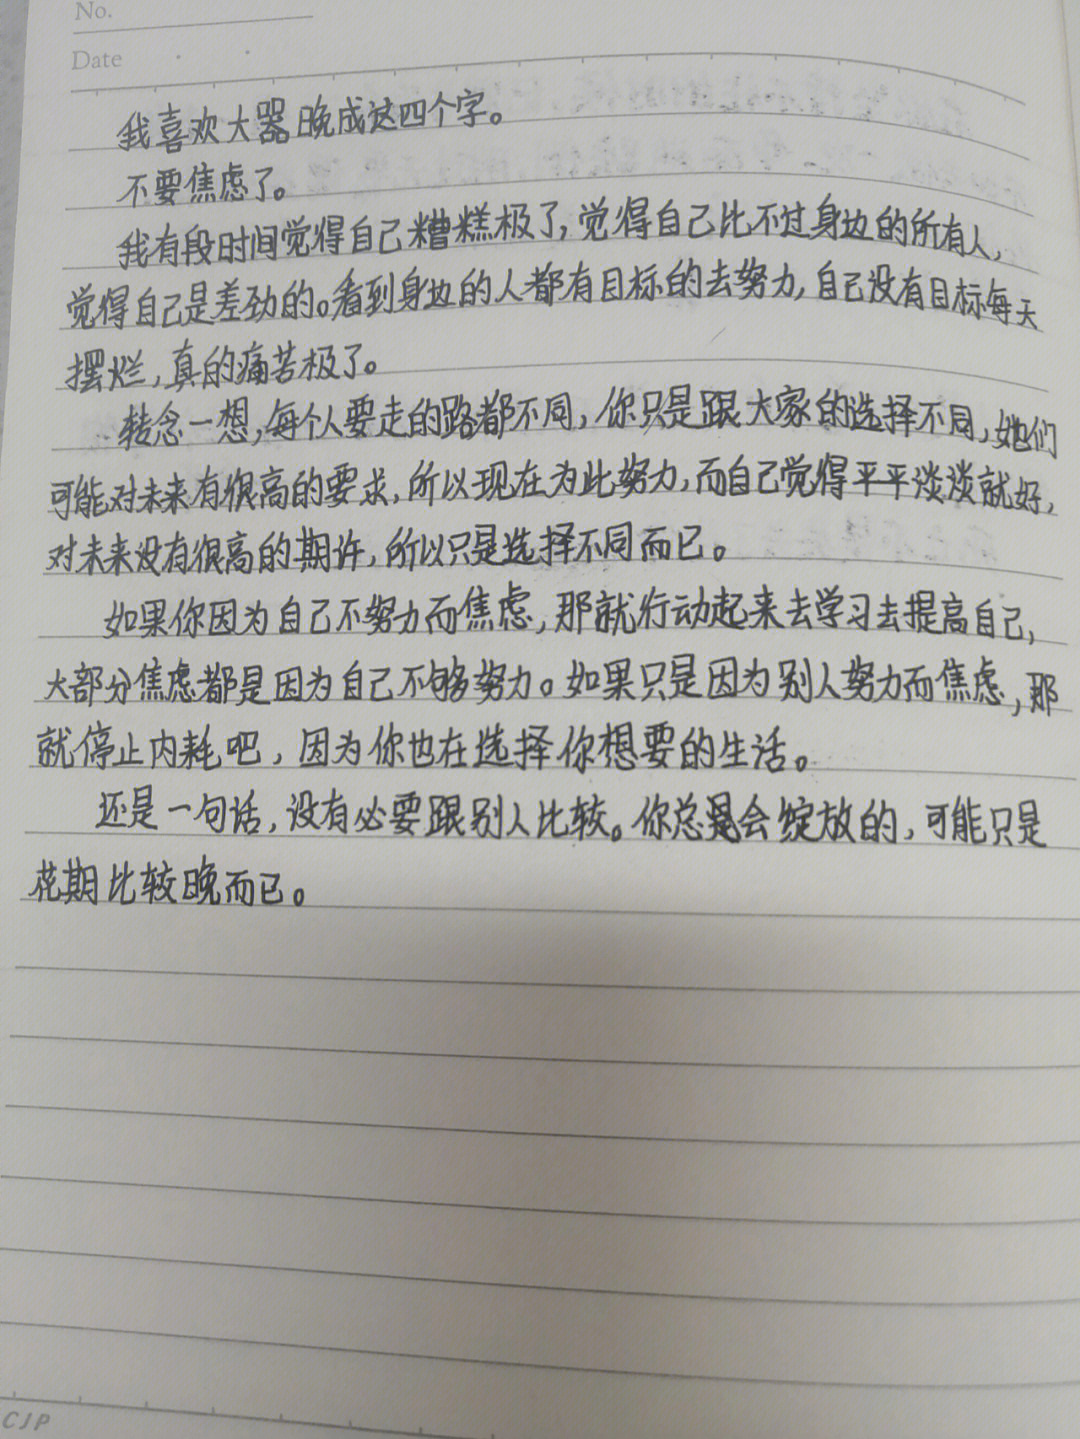 No.
Date
我喜欢大器晚成这四个字。
不要焦虑了。
我有段时间觉得自己糟糕极了,觉得自己比不过身边的所有人,
觉得自己是差劲的。看到身边的人都有目标的去努力,自己没有目标每天
摆烂,真的痛苦极了。
转念一想,每个人要走的路都不同,你只是跟大家的选择不同,她们
可能对未来有很高的要求,所以现在为此努力,而自己觉得平平淡淡就好,
对未来没有很高的期许,所以只是选择不同而已。
如果你因为自己不努力而焦虑,那就行动起来去学习去提高自己,
大部分焦虑都是因为自己不够努力。如果只是因为别人努力而焦虑,那
就停止内耗吧,因为你也在选择你想要的生活。
还是一句话,没有必要跟别人比较。你总是会绽放的,可能只是
花期比较晚而已。
CJP